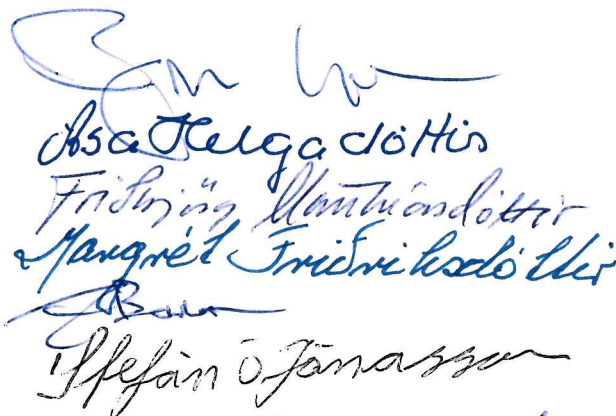 Ása Helgadóttir
Friðbjörg Matthíasdóttir
Margrét Friðriksdóttir
Stefán Ó Jónasson